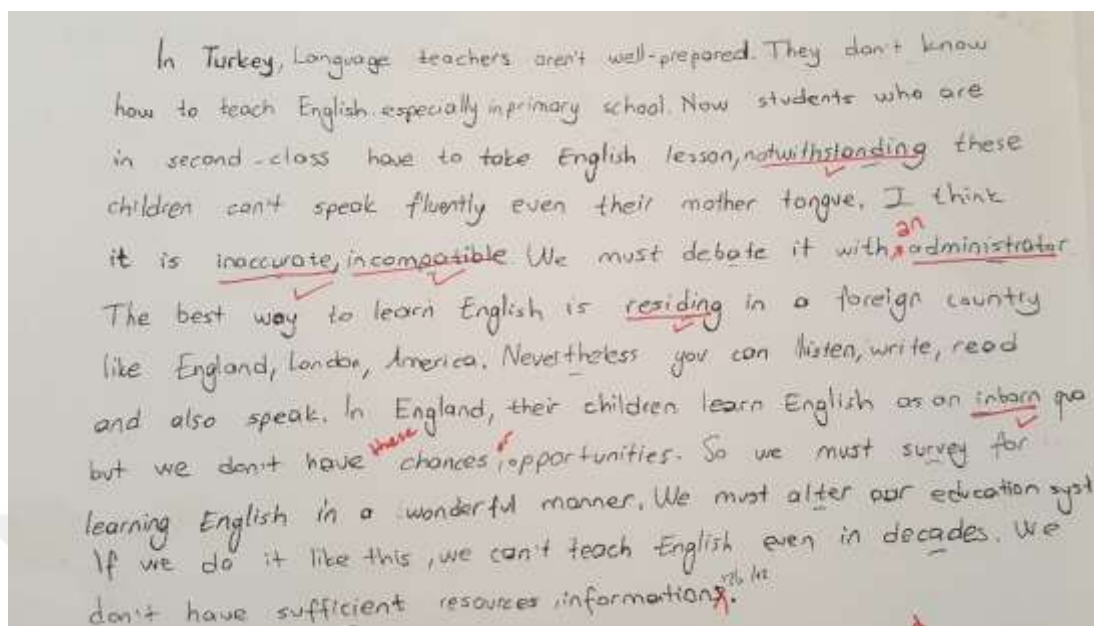 In Turkey, Language teachers aren't well-prepared. They don't know
how to teach English especially in primary school. Now students who are
in second-class have to take English lesson, notwithstanding these
children can't speak fluently even their mother tongue. I think
an
it is inaccurate, incompatible We must debate it with administrator
The best way to learn English is residing in a foreign country
like England, London, America. Nevertheless you can listen, write, read
and also speak. In England, their children learn English as an inborn qua
these or
but we don't have chances, opportunities. So we must survey for
learning English in a wonderful manner. We must alter our education syst
If we do it like this, we can't teach English even in decades. We
don't have sufficient resources, informations.